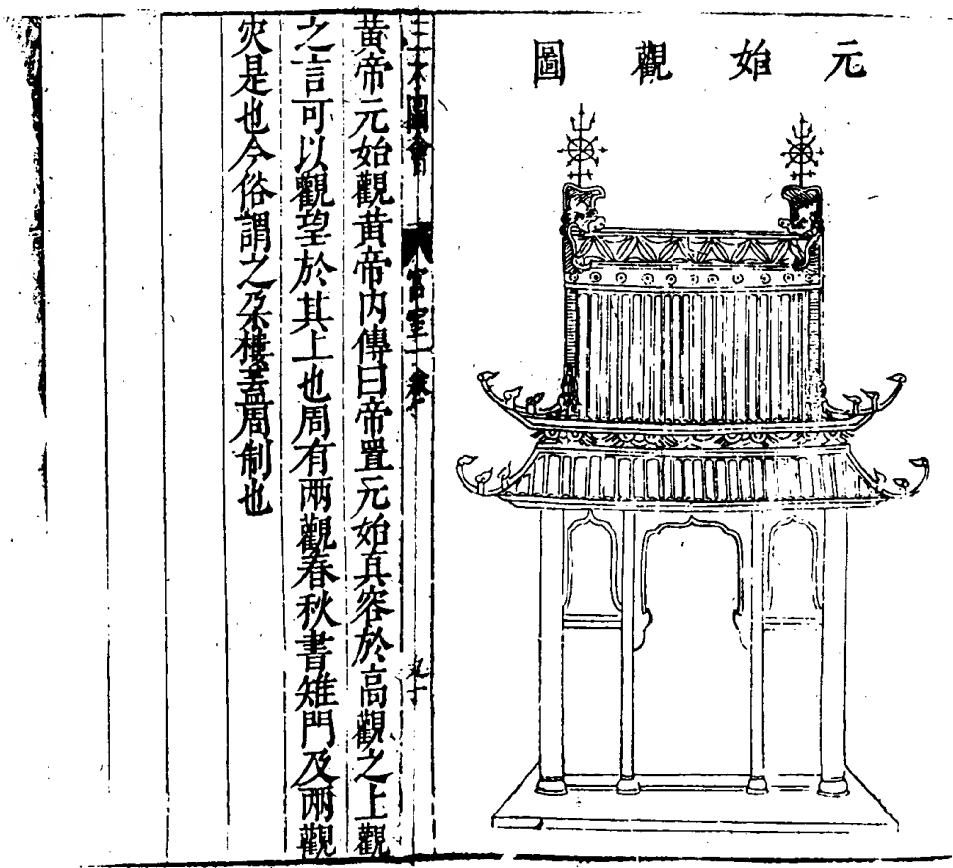 元始觀圖
三才圖會 宮室一卷
黃帝元始觀黃帝内傳曰帝置元始真容於高觀之上觀
之言可以觀望於其上也周有兩觀春秋書雉門及兩觀
灾是也今俗謂之朶樓蓋周制也